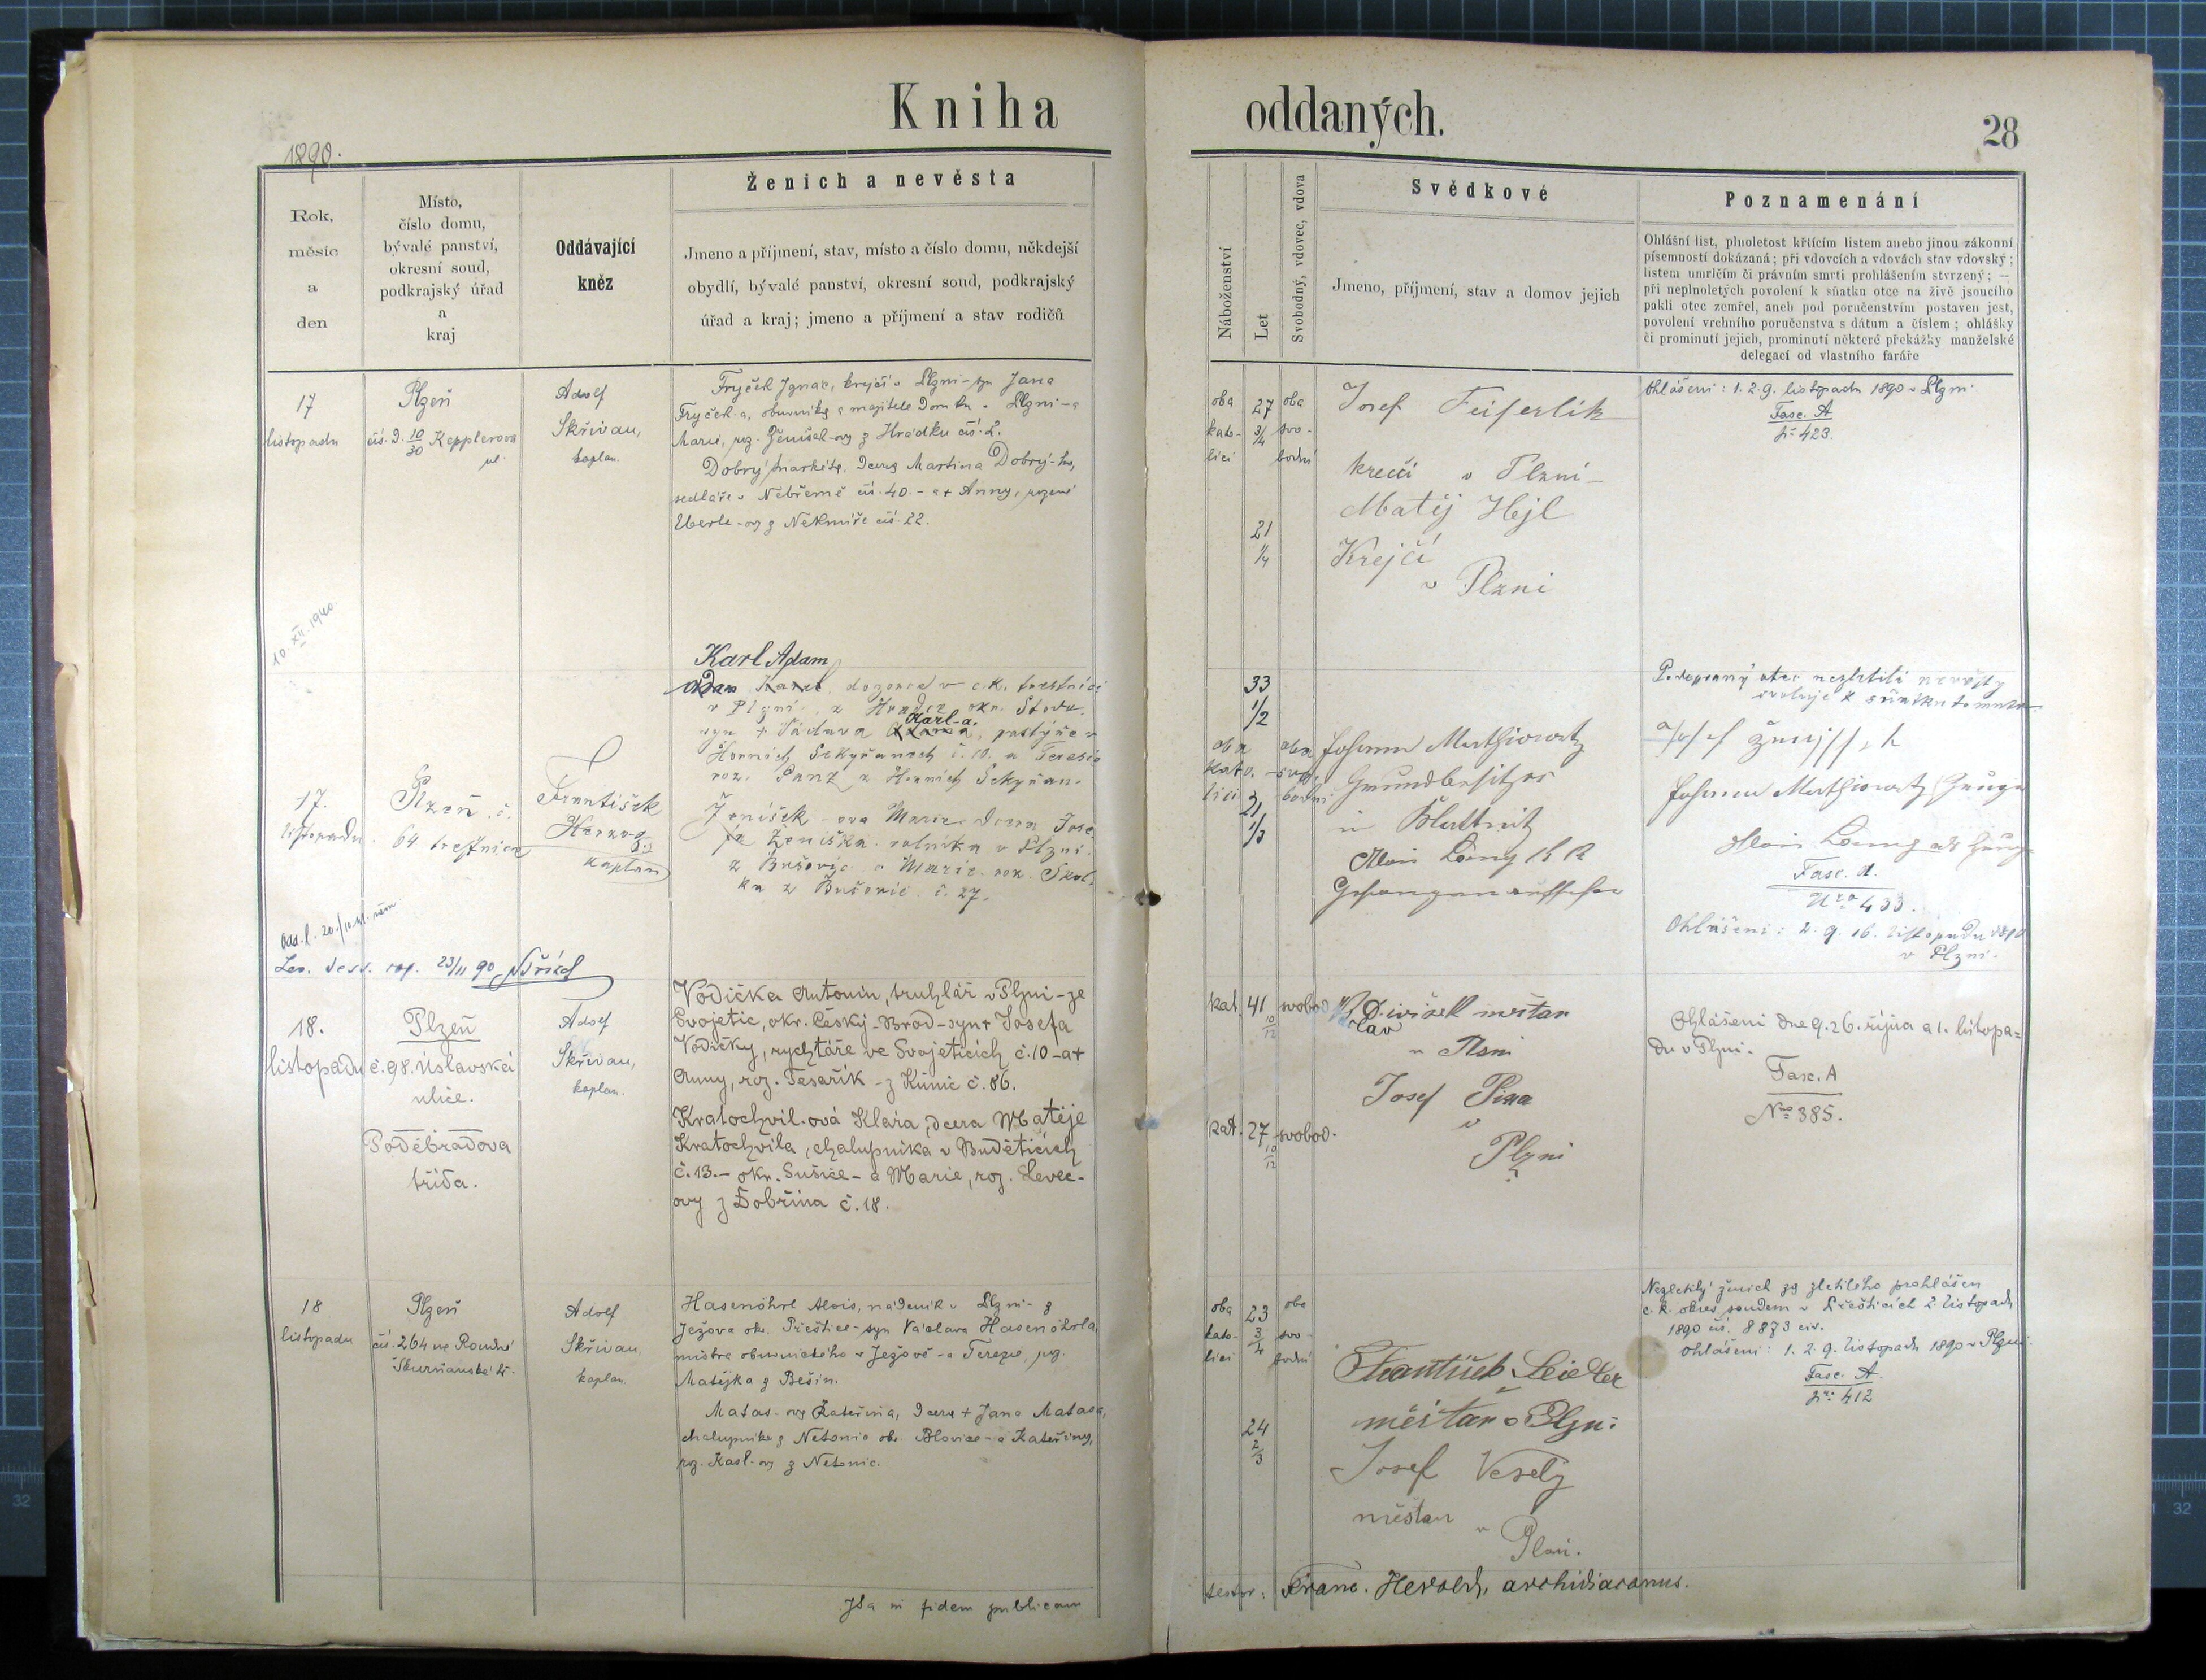 Kniha oddaných.
28
1890.
Rok,
měsíc
a
den
Místo,
číslo domu,
bývalé panství,
okresní soud,
podkrajský úřad
a
kraj
Oddávající
kněz
Ženich a nevěsta
Jmeno a příjmení, stav, místo a číslo domu, někdejší
obydlí, bývalé panství, okresní soud, podkrajský
úřad a kraj; jmeno a příjmení a stav rodičů
Náboženství
Let
Svobodný, vdovec, vdova
Svědkové
Jmeno, příjmení, stav a domov jejich
Poznamenání
Ohlášní list, plnoletost křticím listem anebo jinou zákonní
písemností dokázaná; při vdovcích a vdovách stav vdovský;
listem umrlčím či právním smrti prohlášením stvrzený; —
při neplnoletých povolení k sňatku otce na živě jsoucího
pakli otec zemřel, aneb pod poručenstvím postaven jest,
povolení vrchního poručenstva s dátum a číslem; ohlášky
či prominutí jejich, prominutí některé překážky manželské
delegací od vlastního faráře
17
listopadu
Plzeň
čís. 9. 10/30 Kepplerova
ul.
Adolf
Skřivan,
kaplan.
Fryček Ignác, krejčí v Plzni - syn Jana
Fryček-a, obuvníka a majitele domku v Plzni - a
Marie, roz. Jeníšek-ovy z Hrádku čís. 2.
Dobrý Markéta, dcera Martina Dobrý-ho,
sedláře v Nebřemě čís. 40. - a + Anny, rozené
Eberle-ovy z Nekmíře čís. 22.
oba
kato-
líci
27
3/4
21
1/4
oba
svo-
bodní
Josef Feiferlik
krečí v Plzni
Matěj Hejl
Krejčí
v Plzni
Ohlášeni: 1. 2. 9. listopadu 1890 v Plzni.
Fasc. A
№ 423.
10. XII. 1940
17.
listopadu
Plzeň č.
64 trestnice
František
Herzog
kaplan
Karl Adam
Adam Karel, dozorce v c.k. trestnici
v Plzni, z
syn + Václava Karl-a, pastýře v
Horních Sekyřanech č. 10. a Terezie
roz. Panz z Horních Sekyřan.
Jeníšek-ova Marie dcera Jose-
fa Jeníška rolníka v Plzni
z Bušovic a Marie roz. Skal-
ka z Bušovic č. 27.
oba
kato-
líci
33
1/2
21
1/3
oba
svo-
bodní
Johann Mathiowetz
Grundbesitzer
in Blattnitz
Alois Lang
Gefangenaufseher
Podepsaný otec nezletilé nevěsty
svoluje k sňatku tomuto
Josef
Johann Mathiowetz Zeuge
Alois Lang als Zeuge
Fasc. A.
Nro 433.
Ohlášeni: 2. 9. 16. listopadu 1890
v Plzni.
18.
listopadu
Plzeň
č. 98. Úslavská
ulice.
Poděbradova
třída.
Adolf
Skřivan,
kaplan.
Vodička Antonín, truhlář v Plzni - ze
Svojetic, okr. Český-Brod - syn + Josefa
Vodičky, rychtáře ve Svojeticích č. 10 - a +
Anny, roz. Tesařík - z Kunic č. 86.
Kratochvíl-ová Klára, dcera Matěje
Kratochvíla, chalupníka v Buděticích
č. 13. - okr. Sušice - a Marie, roz. Levec-
ovy z Dobřína č. 18.
kat. 41 10/12 svobod.
kat. 27 10/12 svobod.
Divišek měštan
v Plzni
Josef
v
Plzni
Ohlášeni dne 9. 26. října a 1. listopa-
du v Plzni.
Fasc. A
Nro 385.
18
listopadu
Plzeň
čís. 264 na Roudné
Skurňanská tř.
Adolf
Skřivan,
kaplan.
Hasenöhrl Alois, nádeník v Plzni - z
Ježova okr. Přeštice - syn Václava Hasenöhrla,
mistra obuvnického v Ježově - a Terezie, roz.
Matějka z Bešin.
Matas-ova Kateřina, dcera + Jana Matasa,
chalupníka z Netonic okr. Blovice - a Kateřiny,
roz. Kasl-ovy z Netonic.
oba
kato-
líci
23
3/4
24
2/3
oba
svo-
bodní
František
měštan v Plzni
Josef Veselý
měštan v
Plzni.
Nezletilý ženich za zletilého prohlášen
c. k. okres. soudem v Přešticích 2. listopadu
1890 čís. 8873 civ.
Ohlášeni: 1. 2. 9. listopadu 1890 v Plzni
Fasc. A.
№ 412
Ita in fidem publicam
testor: Franc. Herold, archidiaconus.